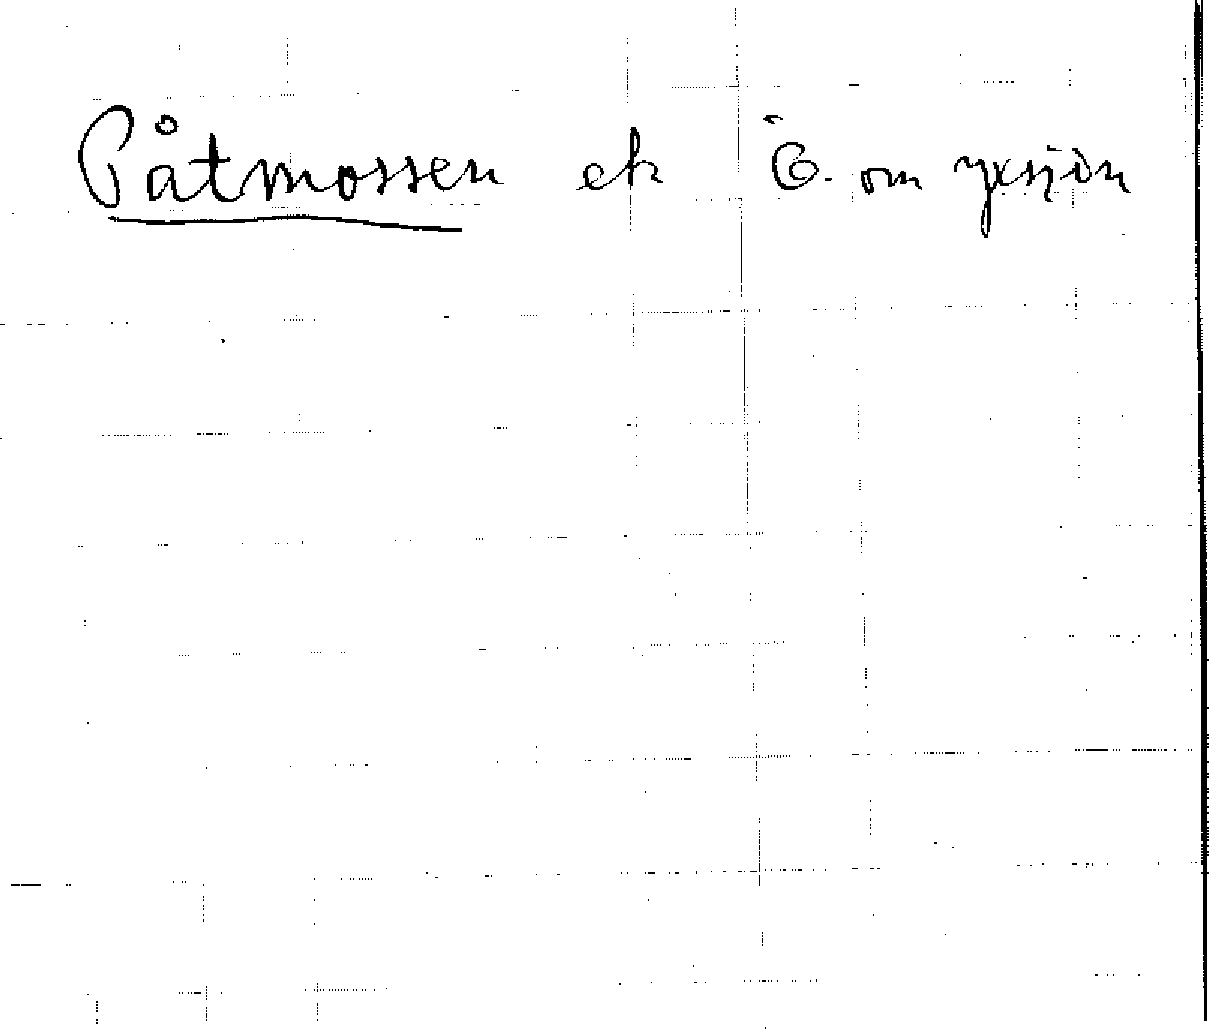 Påtmossen ek Ö. om yxsjön